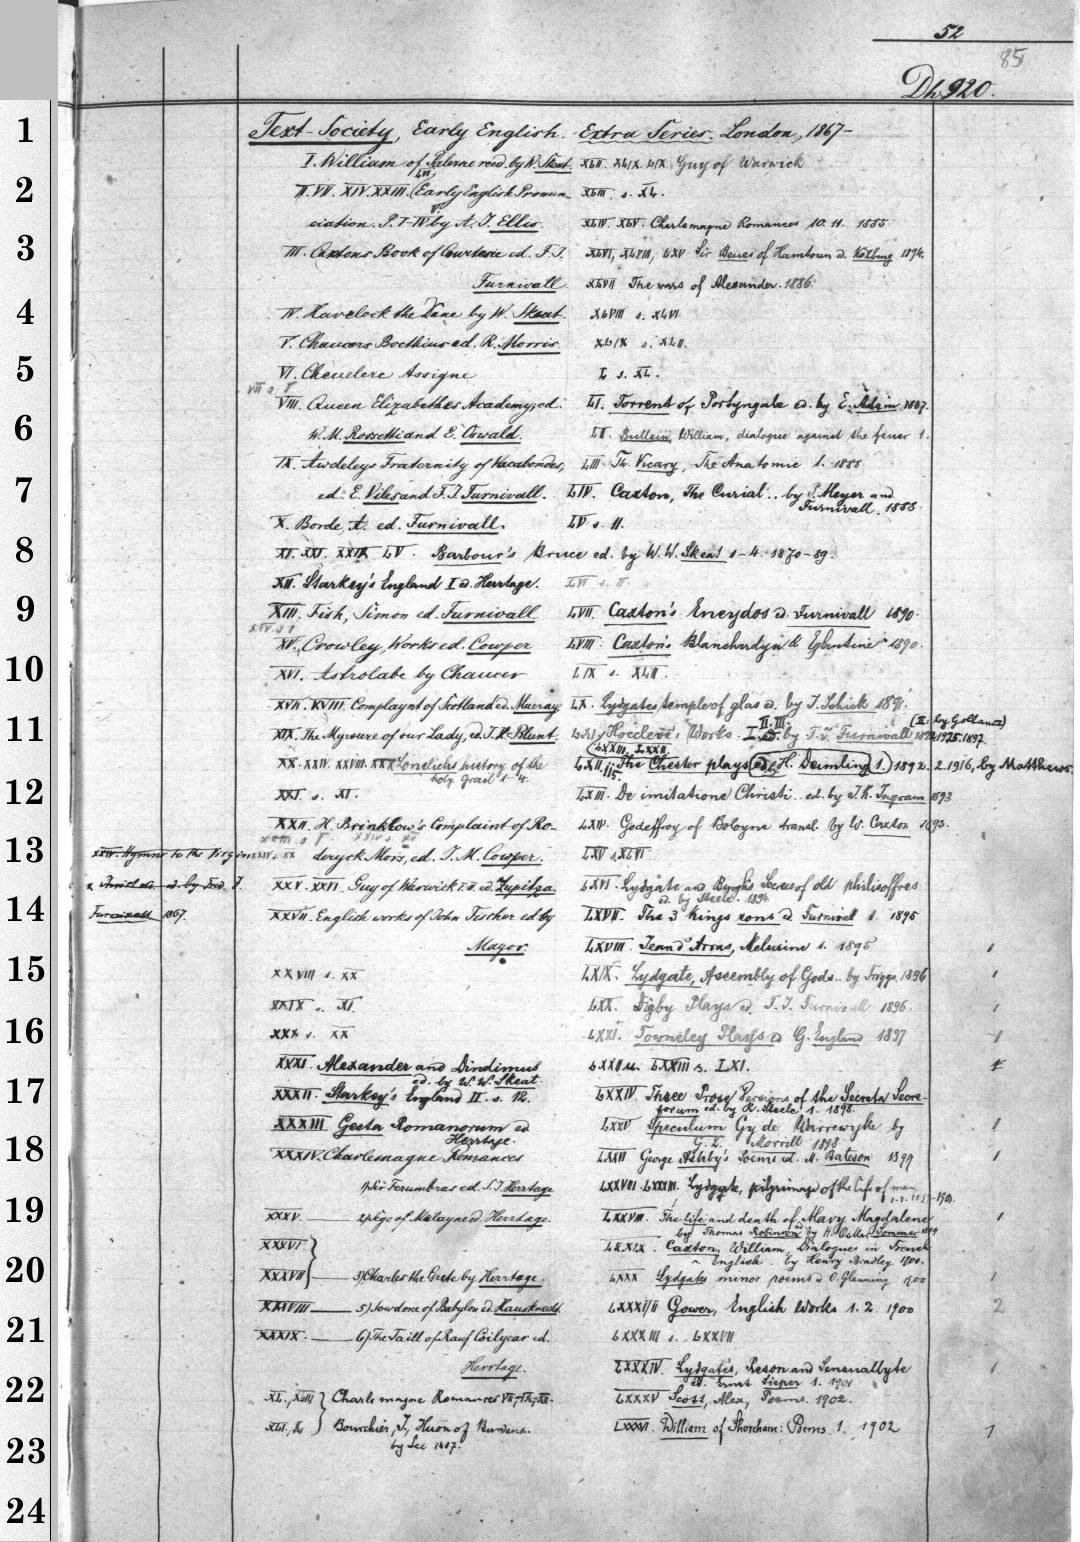 52
85
Dh 920.
Text-Society, Early English. Extra Series. London, 1867-
I. William of Palerne reed. by W. Skeat.
LVI
II. VII. XIV. XXIII. Early English Pronun-
ciation. P. I-IV by A. J. Ellis.
III. Caxtons Book of Courtesie ed. F. J.
Furnivall.
IV. Havelock the Dane by W. Skeat.
V. Chaucers Boethius ed. R. Morris.
VI. Cheuelere Assigne
VII s. II
VIII. Queen Elizabethes Academy, ed.
W. M. Rossetti and E. Oswald.
IX. Awdeleys Fraternity of Vacabondes,
ed. E. Viles and F. J. Furnivall.
X. Borde, A. ed. Furnivall.
XI. XXI. XXIX LV. Barbour's Bruce ed. by W. W. Skeat 1-4. 1870-89.
XII. Starkey's England I ed. Herrtage.
XIII. Fish, Simon ed. Furnivall
XIV. s. II
XV. Crowley, Works ed. Cowper
XVI. Astrolabe by Chaucer
XVII. XVIII. Complaynt of Scotland ed. Murray.
XIX. The Myroure of our Lady, ed. J. H. Blunt.
XX. XXIV. XXVIII. XXX Lonelichs history of the
holy Grail 1-4.
XXI. s. XI.
XXII. H. Brinklow's Complaint of Ro-
XXIV s. XX
deryck Mors, ed. J. M. Cowper.
XXIV. Hymns to the Virgin
& Christ ed. by Fred. J.
Furnivall 1867.
XXV. XXVI. Guy of Warwick I. II. ed. Zupitza
XXVII. English works of John Fischer ed by
Mayor.
XXVIII s. XX
XXIX s. XI.
XXX s. XX
XXXI. Alexander and Dindimus
ed. by W. W. Skeat
XXXII. Starkey's England II. s. 12.
XXXIII Gesta Romanorum ed
Herrtage.
XXXIV. Charlemagne Romances
1) Sir Ferumbras ed. S. J. Herrtage
XXXV. 2) Sege of Melayne ed. Herrtage.
XXXVI
XXXVII 3) Charles the Grete by Herrtage.
XXXVIII 5) Sowdone of Babylon ed. Hausknecht.
XXXIX. 6) The Taill of Rauf Coilyear ed.
Herrtage.
XL., XLIII Charlemagne Romances VII, IX, XII.
XLI., L Bourchier, J., Huon of Burdeux.
by Lee 1887.
XLII. XLIX. LIX Guy of Warwick
XLIII. s. XL.
XLIV. XLV. Charlemagne Romances 10. 11. 1885
XLVI, XLVIII, LXV Sir Beues of Hamtoun ed. Kölbing 1894.
XLVII The wars of Alexander. 1886.
XLVIII s. XLVI
XLIX s. XLII.
L s. XL.
LI. Torrent of Portyngale ed. by E. Adam 1887.
LII. Bullein, William, dialogue against the feuer 1.
LIII Th. Vicary, The Anatomie 1. 1888
LIV. Caxton, The Curial.. by P. Meyer and
Furnivall. 1888.
LV s. 11.
LVI s. II.
LVII. Caxton's Eneydos ed. Furnivall 1890.
LVIII. Caxton's Blanchardyn & Eglantine 1890.
LIX s. XLII
LX. Lydgates temple of glas ed. by J. Schick 1891.
LXI. Hoccleve's Works. I. II. III. by F. J. Furnivall 1892. 1925. 1897.
(II: by Gollancz)
LXXIII, LXXII.
LXII. 115 The Chester plays ed. by H. Deimling 1. 1892. 2. 1916, by Matthews.
LXIII. De imitatione Christi.. ed. by J. K. Ingram 1893
LXIV. Godeffroy of Bologne transl. by W. Caxton 1893.
LXV s. XLVI
LXVI. Lydgate and Burghs Secrees of old philisoffres
ed. by Steele. 1894.
LXVII. The 3 Kings sons ed Furnivall 1. 1895
LXVIII. Jean d'Arras, Melusine 1. 1895 1
LXIX. Lydgate, Assembly of Gods.. by Triggs. 1896 1
LXX. Digby Plays ed. F. J. Furnivall 1896. 1
LXXI. Towneley Plays ed G. England 1897 1
LXXII u. LXXIII s. LXI.
LXXIV Three Prose Versions of the Secreta Secre-
torum ed. by R. Steele 1. 1898.
LXXV Speculum Gy de Warrewyke by 1
G. L. Morrill 1898
LXXVI George Ashby's Poems ed. M. Bateson 1899 1
LXXVII. LXXXIII, Lydgate, pilgrimage of the life of man
LXXVIII. The life and death of Mary Magdalene 1
by Thomas Robinson ed by H. Oskar Sommer 1899
LXXIX. Caxton, William, Dialogues in French
& English. by Henry Bradley 1900.
LXXX Lydgates minor poems ed O. Glauning 1900 1
LXXXI/II Gower, English Works 1. 2. 1900 2
LXXXIII s. LXXVII
LXXXIV. Lydgate's, Reson and Sensuallyte 1
ed. Ernst Sieper 1. 1901
LXXXV Scott, Alex., Poems. 1902.
LXXXVI. William of Shoreham: Poems 1. 1902 1
1
2
3
4
5
6
7
8
9
10
11
12
13
14
15
16
17
18
19
20
21
22
23
24